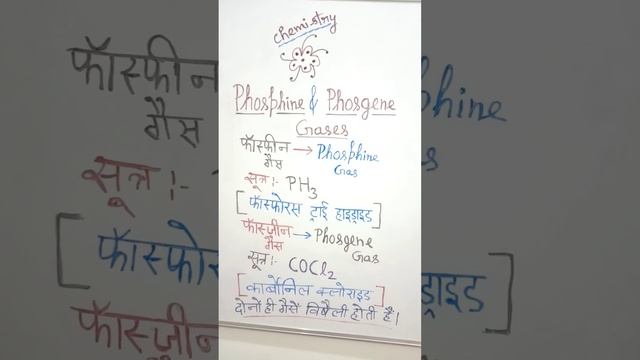 Chemistry
Phosphine & Phosgene
Gases
फॉस्फीन → Phosphine
गैस Gas
सूत्र :- PH3
[फॉस्फोरस ट्राई हाइड्राइड]
फॉस्ज़ीन → Phosgene
गैस Gas
सूत्र :- COCl2
[कार्बोनिल क्लोराइड]
दोनों ही गैसें विषैली होती हैं।